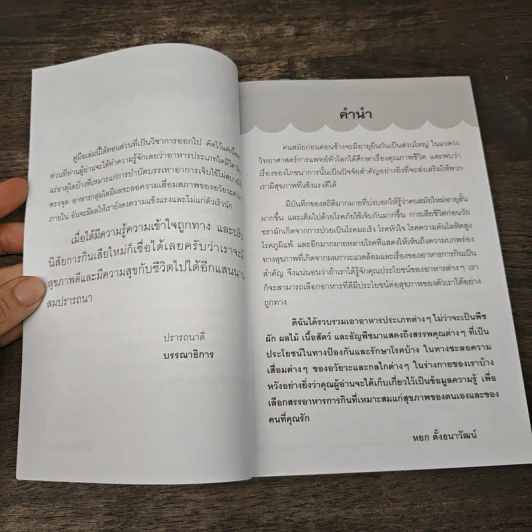 คู่มือเล่มนี้ได้ทอนส่วนที่เป็นวิชาการออกไป คัดไว้แต่เนื้อหา
ส่วนที่ท่านผู้อ่านจะได้ทำความรู้จักเลยว่าอาหารประเภทใดมีวิตามิน
แร่ธาตุใดบ้างที่เหมาะแก่การบำบัดบรรเทาอาการเจ็บไข้ไม่สบายได้
ตรงจุด อาหารกลุ่มใดมีผลชะลอความเสื่อมสภาพของอวัยวะต่างๆ
ภายใน อันจะมีผลให้เรายังคงความแข็งแรงและไม่แก่ตัวเร็วนัก
เมื่อได้มีความรู้ความเข้าใจถูกทาง และปรับ
นิสัยการกินเสียใหม่ก็เชื่อได้เลยครับว่าเราจะมี
สุขภาพดีและมีความสุขกับชีวิตไปได้อีกแสนนาน
สมปรารถนา
ปรารถนาดี
บรรณาธิการ
คำนำ
คนสมัยก่อนค่อนข้างจะมีอายุยืนกันเป็นส่วนใหญ่ ในแวดวง
วิทยาศาสตร์การแพทย์ทั่วโลกได้ศึกษาเรื่องคุณภาพชีวิต และพบว่า
เรื่องของโภชนาการนั้นเป็นปัจจัยสำคัญอย่างยิ่งที่จะส่งเสริมให้พวก
เรามีสุขภาพที่แข็งแรงดีได้
มีบันทึกของสถิติมากมายที่บ่งบอกให้รู้ว่าคนสมัยใหม่อายุสั้น
มากขึ้น และเต็มไปด้วยโรคภัยไข้เจ็บกันมากขึ้น การเสียชีวิตก่อนวัย
ชรามักเกิดจากการป่วยเป็นโรคมะเร็ง โรคหัวใจ โรคความดันโลหิตสูง
โรคภูมิแพ้ และอีกมากมายหลายโรคที่แสดงให้เห็นถึงความบกพร่อง
ทางสุขภาพที่เกิดจากมลภาวะแวดล้อมและเรื่องของอาหารการกินเป็น
สำคัญ จึงแน่นอนว่าถ้าเราได้รู้จักคุณประโยชน์ของอาหารต่างๆ เรา
ก็จะสามารถเลือกอาหารที่ดีมีประโยชน์ต่อสุขภาพของตัวเราได้อย่าง
ถูกทาง
ดิฉันได้รวบรวมเอาอาหารประเภทต่างๆ ไม่ว่าจะเป็นพืช
ผัก ผลไม้ เนื้อสัตว์ และธัญพืชมาแสดงถึงสรรพคุณต่างๆ ที่เป็น
ประโยชน์ในทางป้องกันและรักษาโรคบ้าง ในทางชะลอความ
เสื่อมต่างๆ ของอวัยวะและกลไกต่างๆ ในร่างกายของเราบ้าง
หวังอย่างยิ่งว่าคุณผู้อ่านจะได้เก็บเกี่ยวไว้เป็นข้อมูลความรู้ เพื่อ
เลือกสรรอาหารการกินที่เหมาะสมแก่สุขภาพของตนเองและของ
คนที่คุณรัก
หยก ตั้งธนาวัฒน์